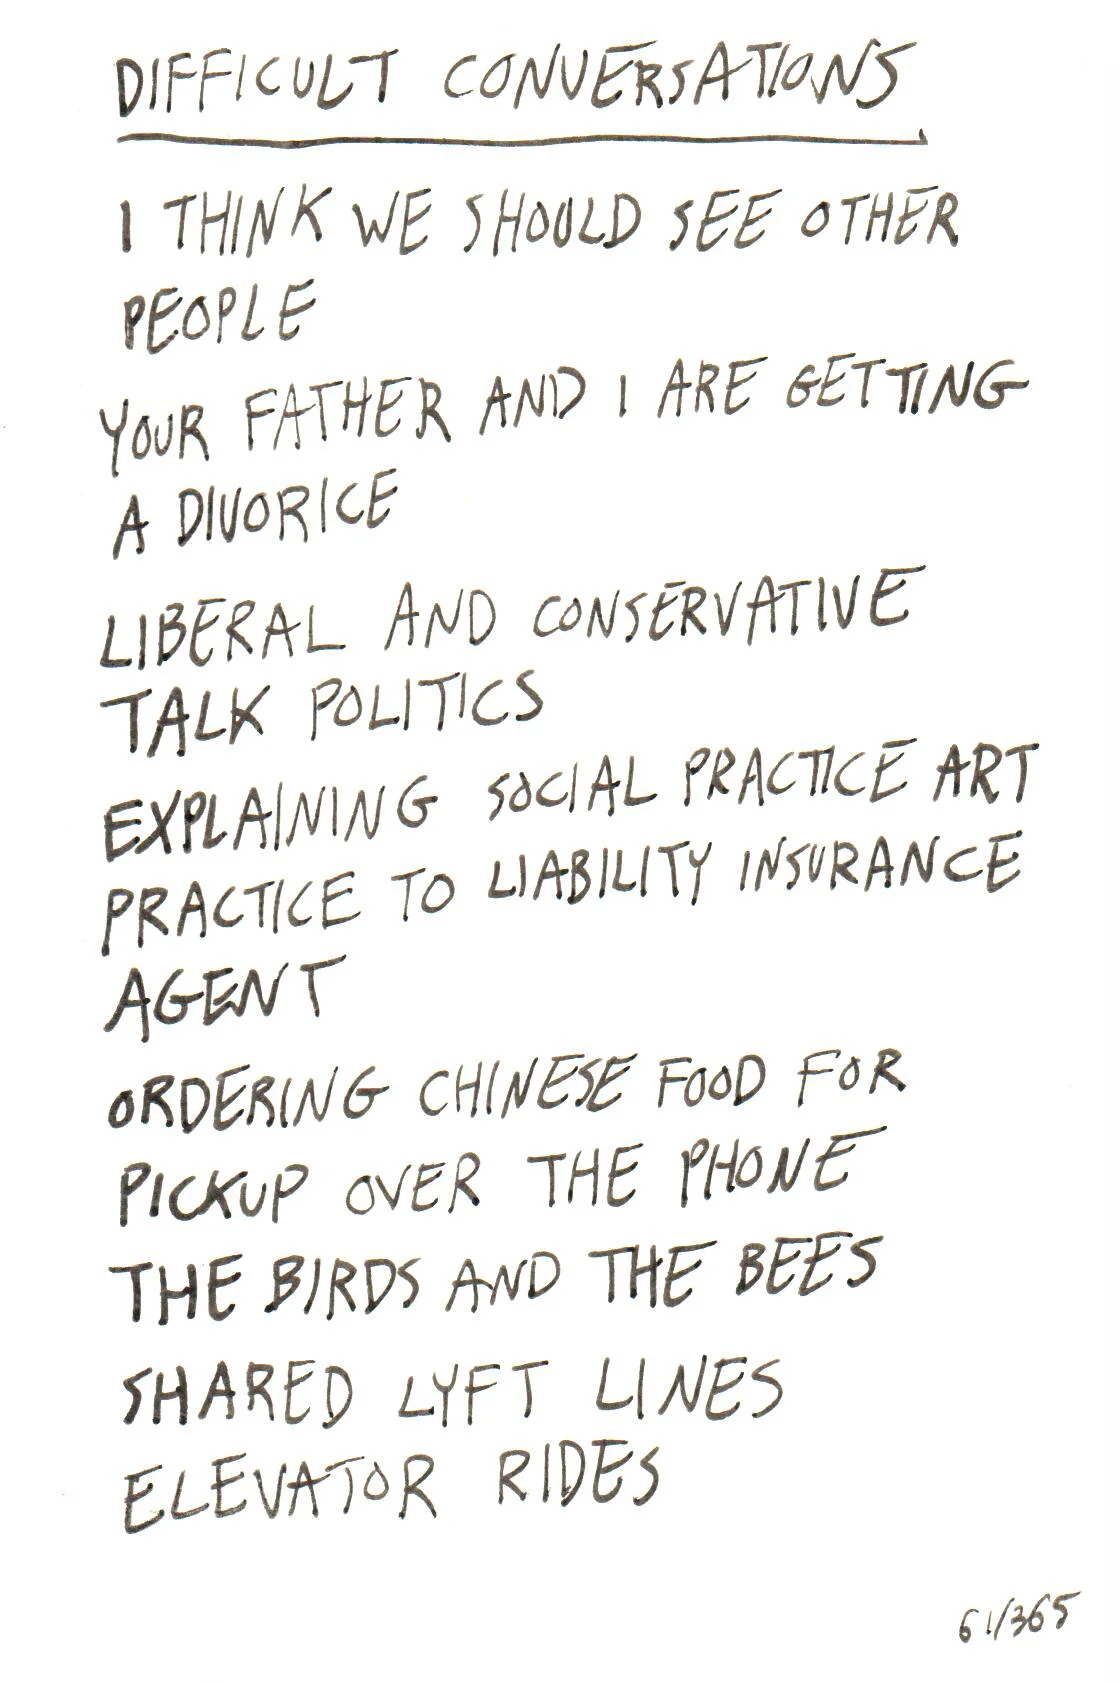 DIFFICULT CONVERSATIONS
I THINK WE SHOULD SEE OTHER
PEOPLE
YOUR FATHER AND I ARE GETTING
A DIVORICE
LIBERAL AND CONSERVATIVE
TALK POLITICS
EXPLAINING SOCIAL PRACTICE ART
PRACTICE TO LIABILITY INSURANCE
AGENT
ORDERING CHINESE FOOD FOR
PICKUP OVER THE PHONE
THE BIRDS AND THE BEES
SHARED LYFT LINES
ELEVATOR RIDES
61/365